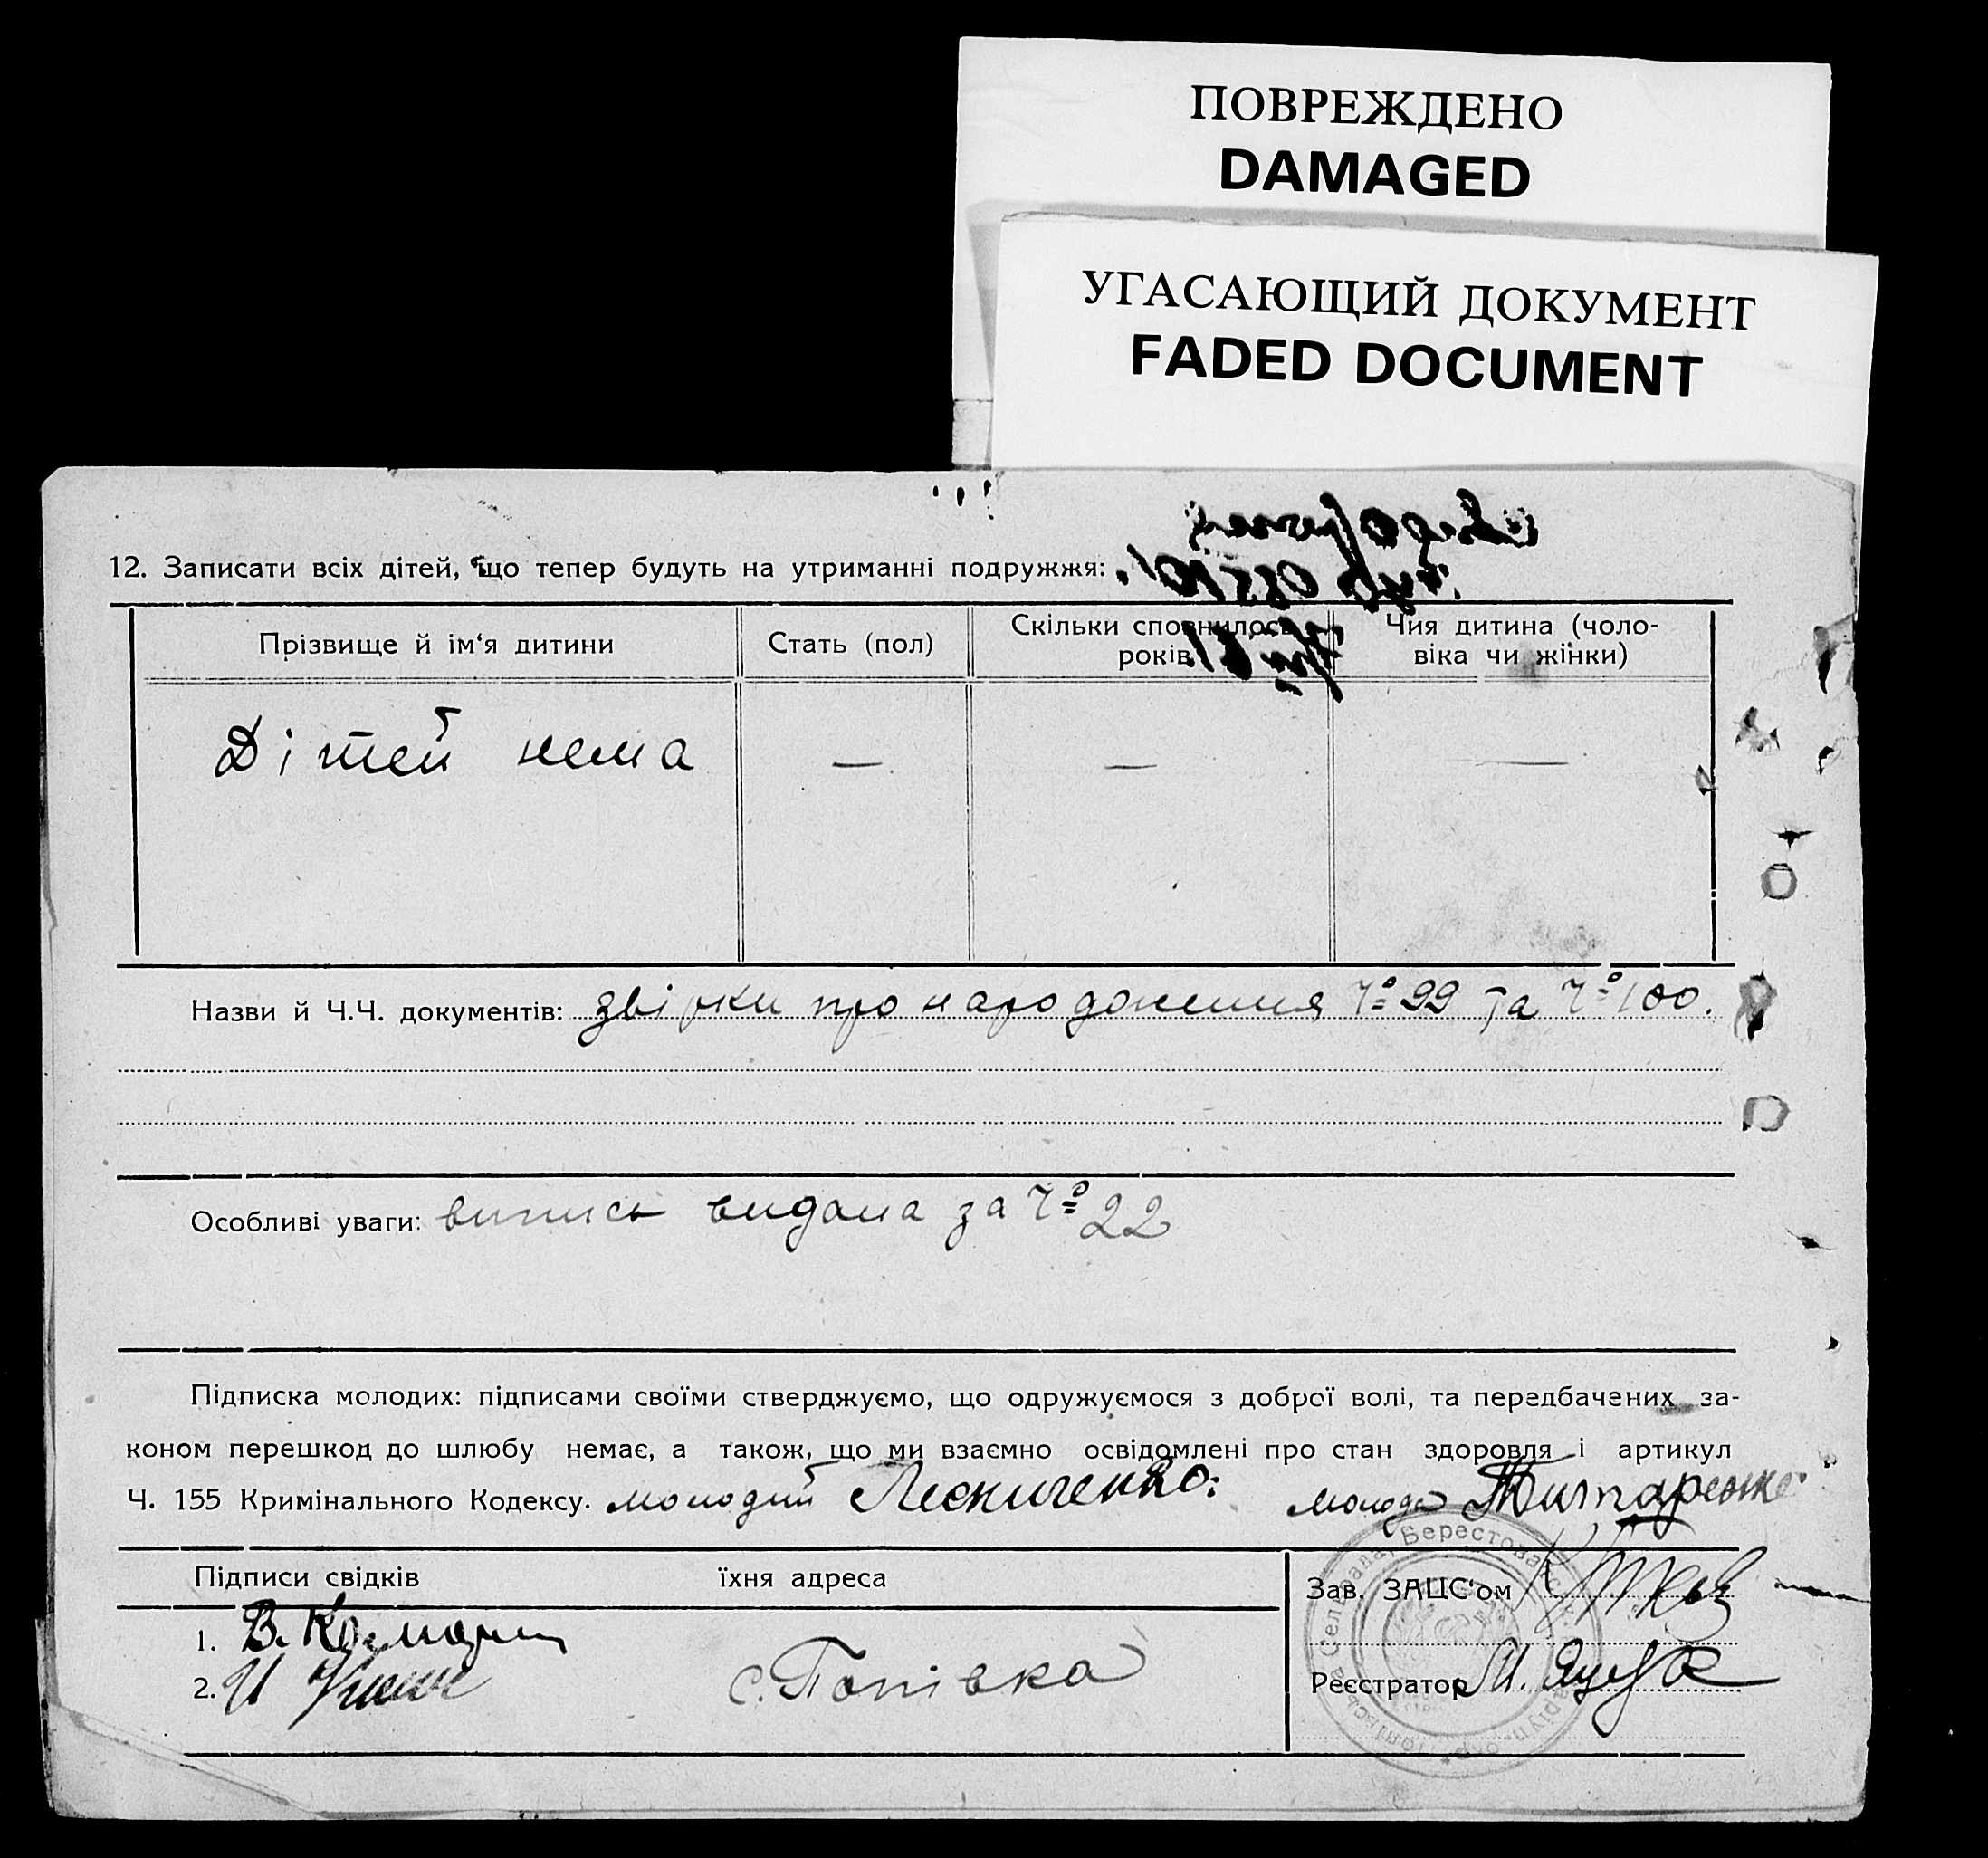 ПОВРЕЖДЕНО
DAMAGED
УГАСАЮЩИЙ ДОКУМЕНТ
FADED DOCUMENT
12. Записати всіх дітей, що тепер будуть на утриманні подружжя:
Прізвище й ім‘я дитини
Стать (пол)
Скільки сповнилось
років
Чия дитина (чоло-
віка чи жінки)
Дітей нема — — —
Назви й Ч.Ч. документів: про народження Ч⁰ 99 та Ч⁰ 100.
Особливі уваги: випись видана за Ч⁰ 22
Підписка молодих: підписами своїми стверджуємо, що одружуємося з доброї волі, та передбачених за-
коном перешкод до шлюбу немає, а також, що ми взаємно освідомлені про стан здоровля і артикул
Ч. 155 Кримінального Кодексу. молодий молода
Підписи свідків
їхня адреса
Зав. ЗАЦС‘ом
1. В.
2. И
с. Попівка
Реєстратор М.
Сельрада, Берестова